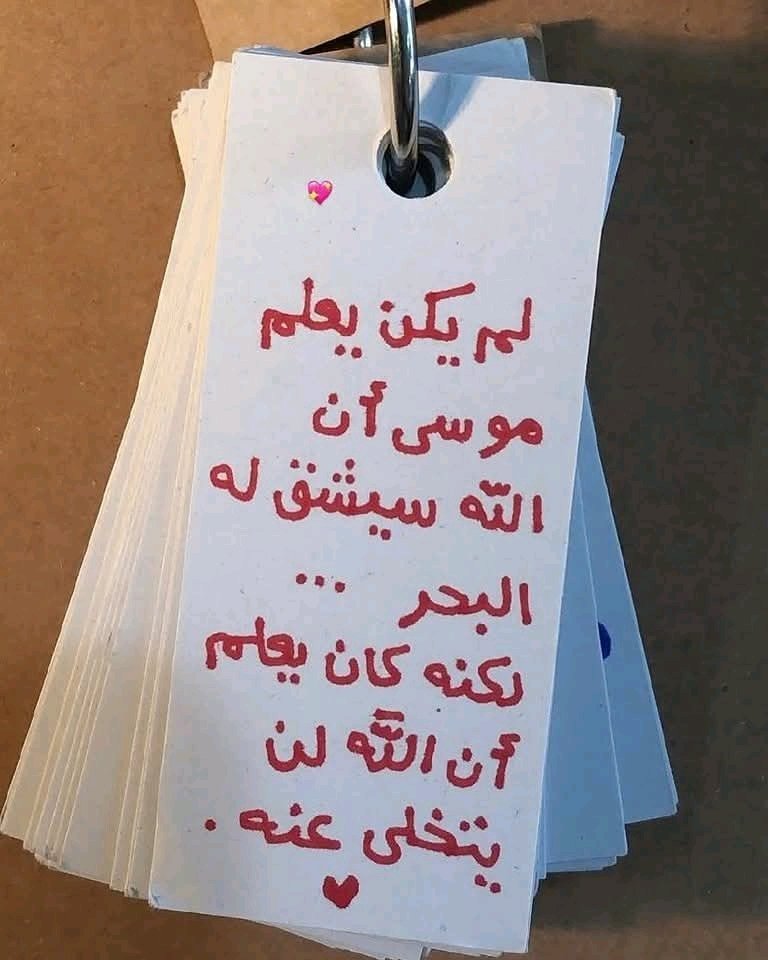 لم يكن يعلم
موسى أن
الله سيشق له
البحر ...
لكنه كان يعلم
أن الله لن
يتخلى عنه .